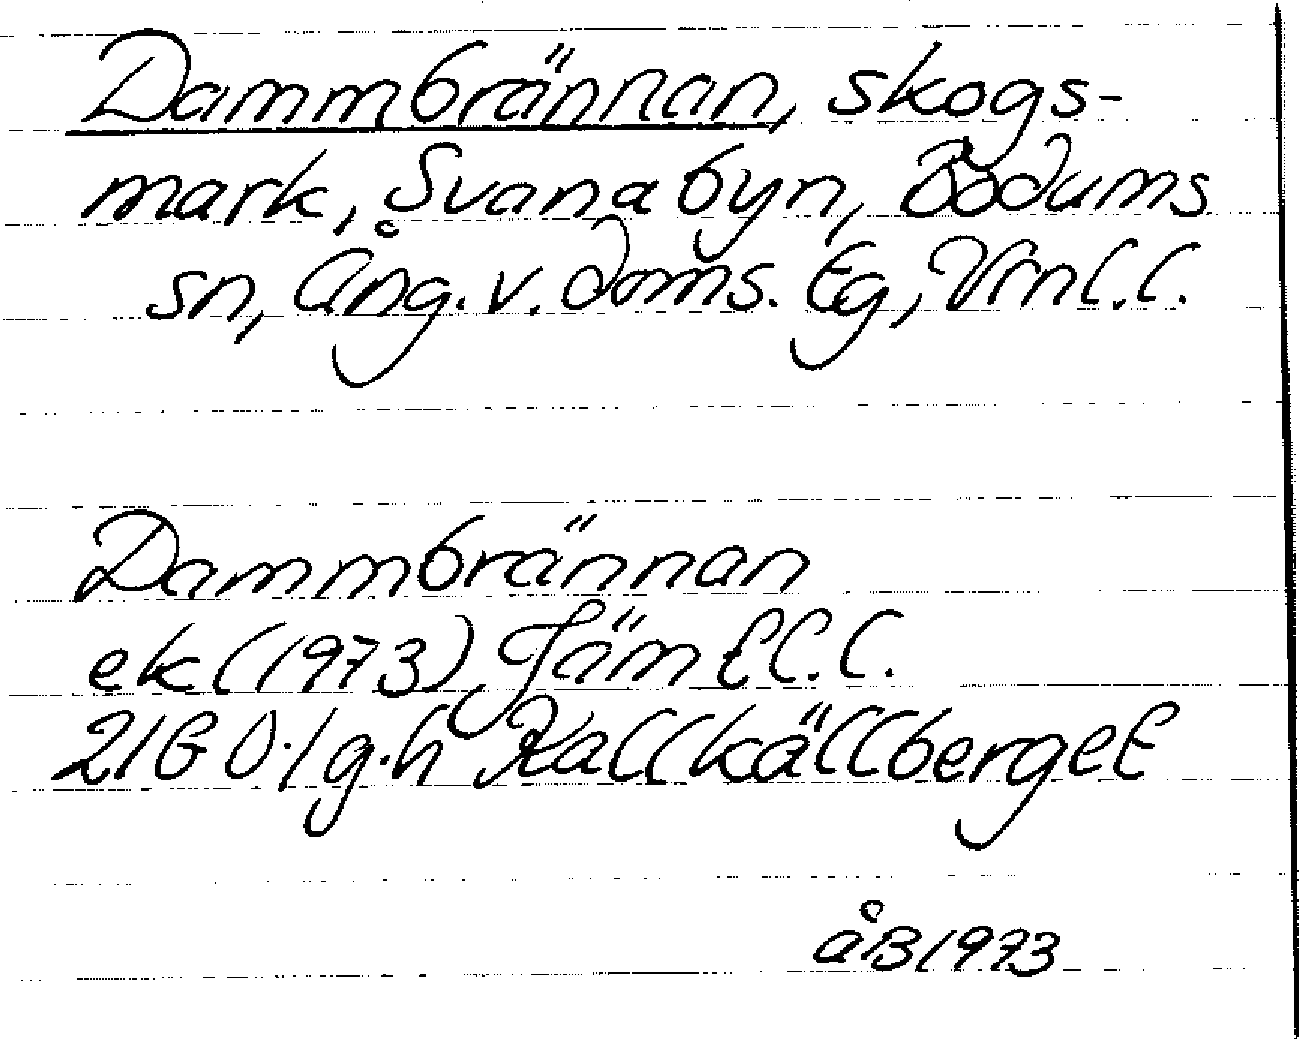 Dammbrännan, skogs-
mark, Svanabyn, Bodums
sn, Ång. v. doms. tg, Vrnl.l.
Dammbrännan
ek (1973), Jämtl.l.
21G 0/1 g.h Kallkällberget
ÅB 1973